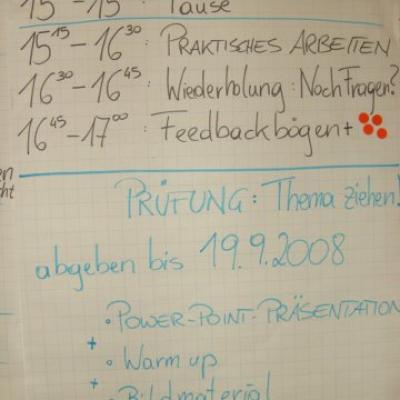 15 - 15 : Pause
15 15 - 16 30 : PRAKTISCHES ARBEITEN
16 30 - 16 45 : Wiederholung : Noch Fragen?
16 45 - 17 00 : Feedbackbögen +
PRÜFUNG : Thema ziehen!
abgeben bis 19.9.2008
• POWER-POINT-PRÄSENTATION
+
• Warm up
+
• Bildmaterial